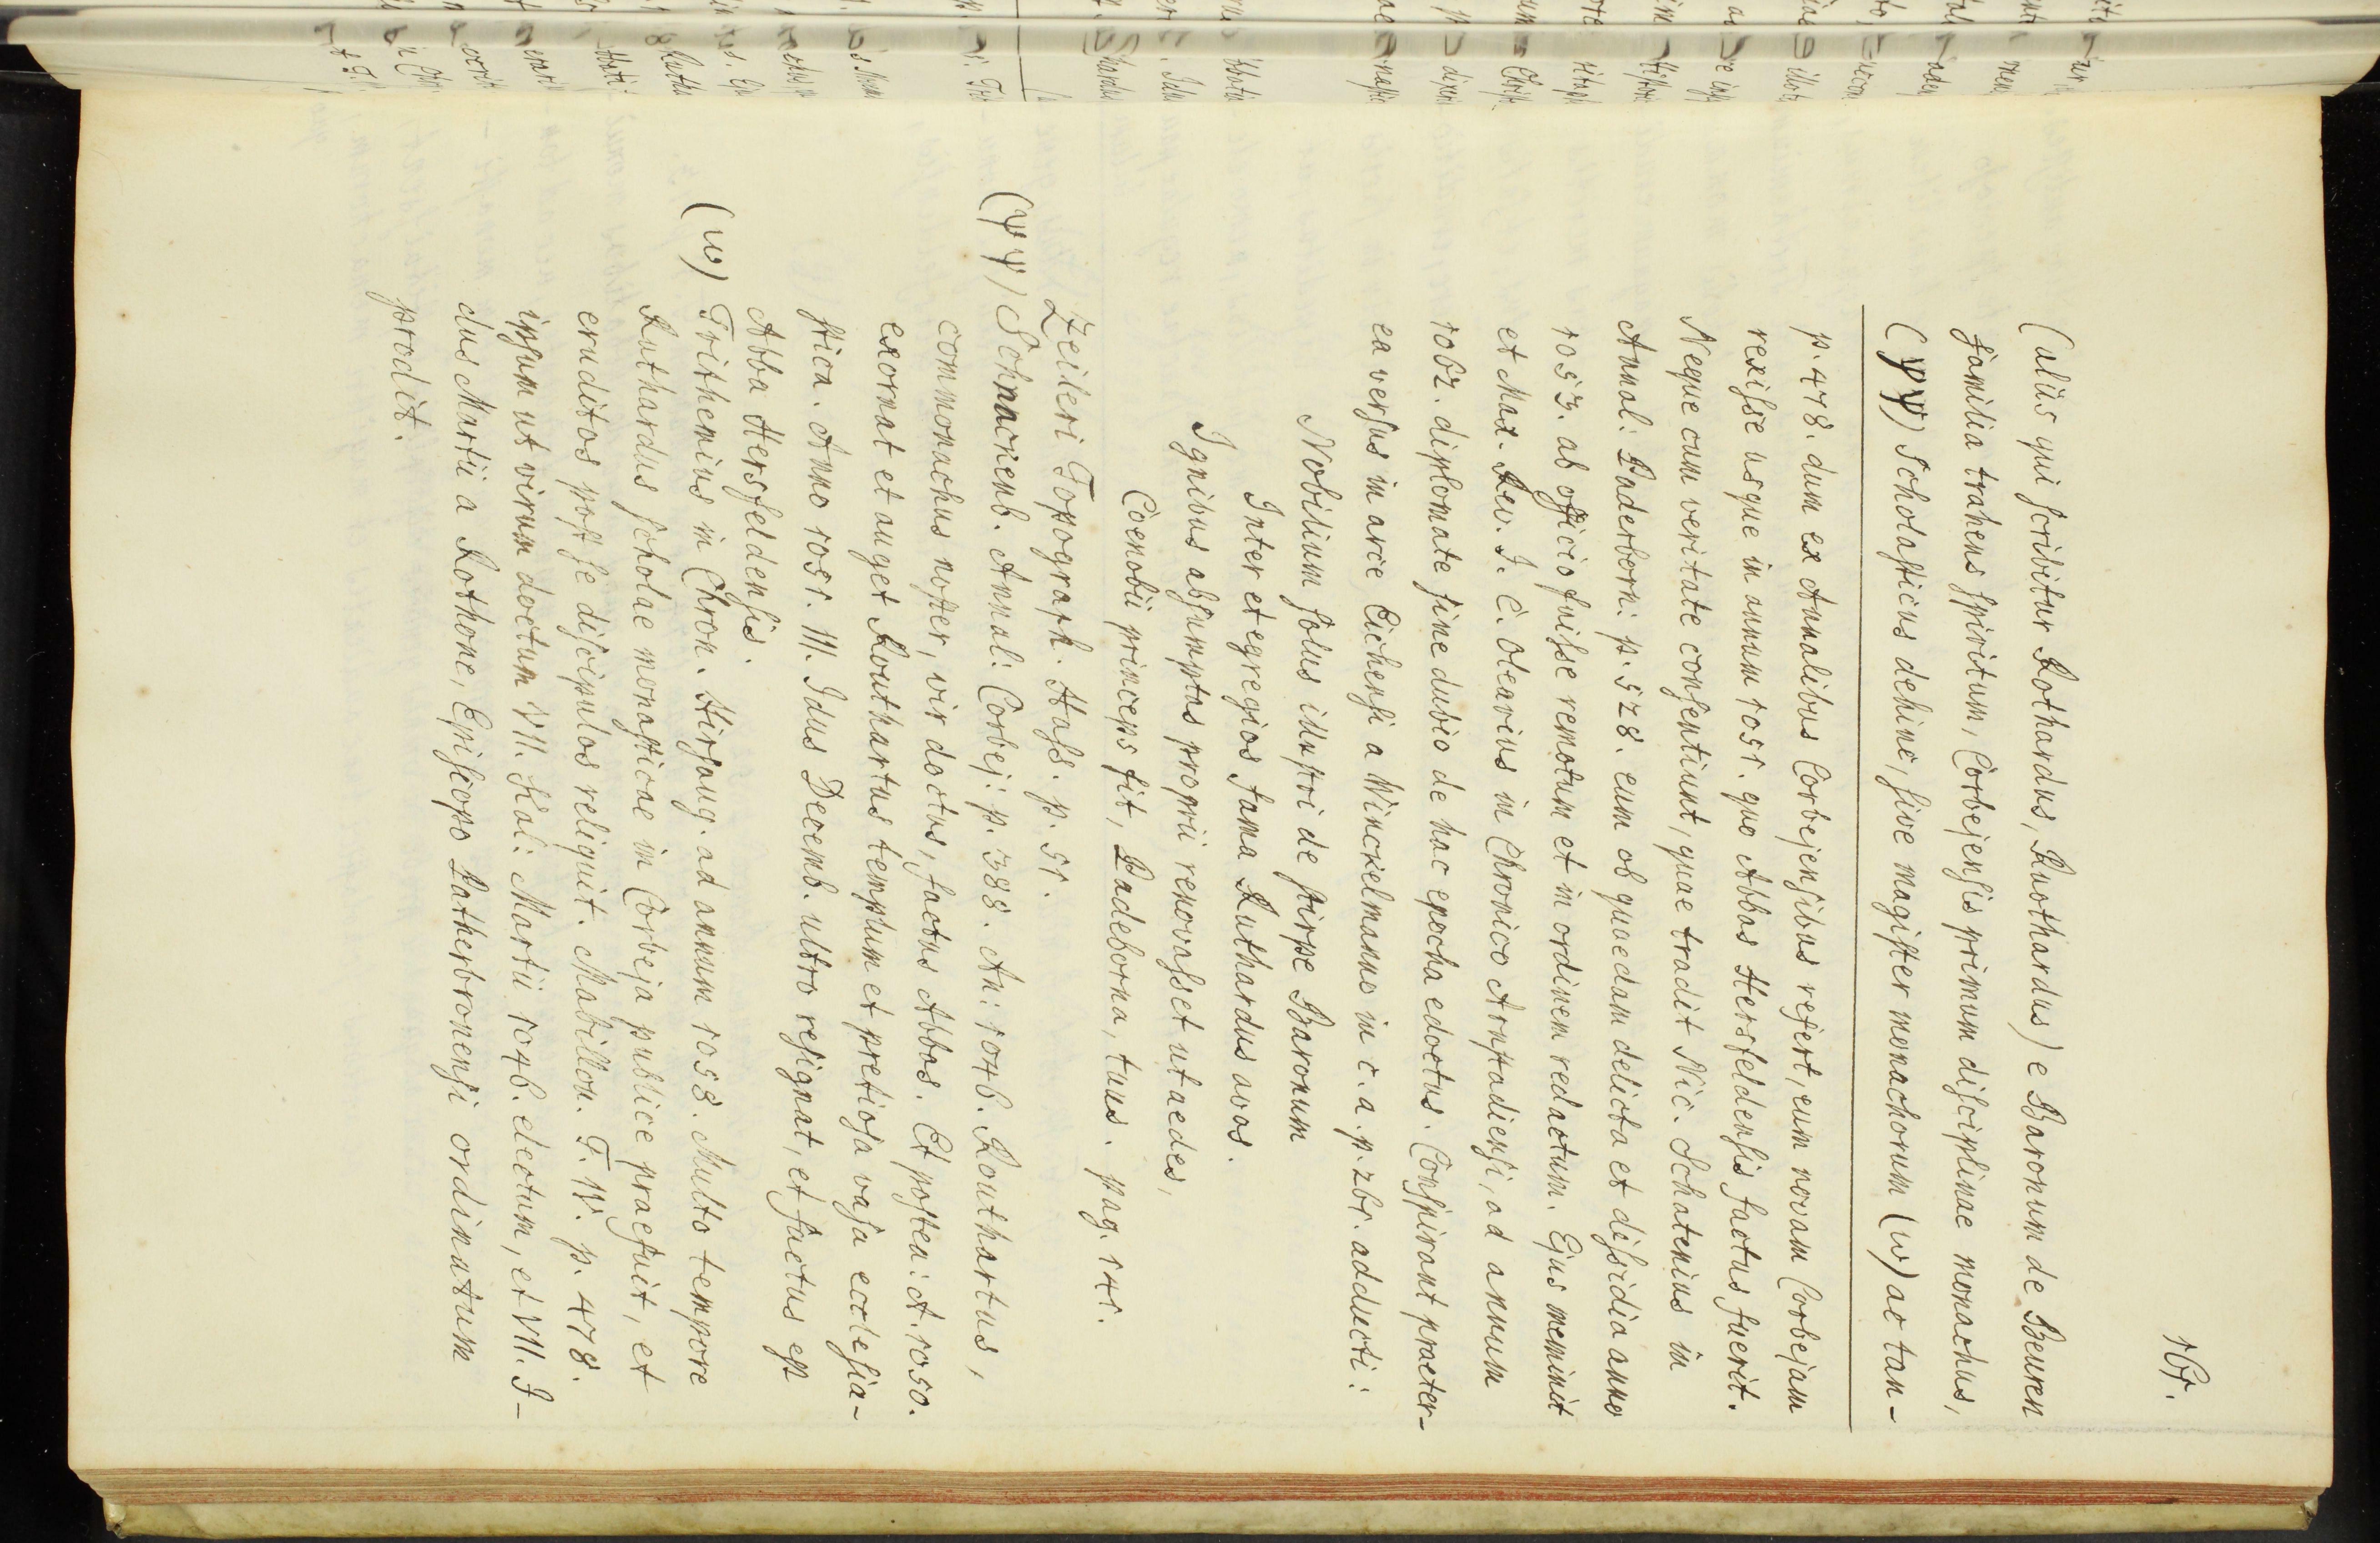 161.
(aliis qui scribitur Rothardus, Ruothardus) e Baronum de Beuren
familia trahens spiritum, Corbejensis primum disciplinae monachus,
(ψψ) Scholasticus dehinc, sive magister monachorum (ω) ac tan-
p. 478. dum ex Annalibus Corbejensibus refert, eum novam Corbejam
rexisse usque in annum 1051. quo Abbas Hersfeldensis factus fuerit.
Neque cum veritate consentiunt, quae tradit Nic. Schatenius in
Annal: Paderborn: p. 528. eum ob quaedam delicta et dissidia anno
1053. ab officio fuisse remotum et in ordinem redactum. Ejus meminit
et Max. Rev. J. C. Olearius in Chronico Arnstadiensi, ad annum
1062. diplomate sine dubio de hac epocha edoctus. Conspirant praeter-
ea versus in arce Eichensi a Winckelmanno in c. a. p. 261. adducti:
Nobilium solus illustri de stirpe Baronum
Inter et egregios fama Ruthardus avos.
Ignibus absumptas proprii renovasset ut aedes,
Coenobii princeps fit, Padeborna, tuus. pag. 141.
Zeileri Topograph. Hass. p. 51.
(ψψ) Schnackenb. Annal: Corbej: p. 388. An: 1046. Routhartus,
commonachus noster, vir doctus, factus Abbas. Et postea: A. 1050.
exornat et auget Routhartus templum et pretiosa vasa ecclesia-
stica. Anno 1051. III. Idus Decemb. ultro resignat, et factus est
Abba Hersfeldensis.
(ω) Trithemius in Chron. Hirsaug. ad annum 1058. Multo tempore
Ruthardus scholae monasticae in Corbeja publice praefuit, et
eruditos post se discipulos reliquit. Mabillon. T. IV. p. 478.
ipsum ut virum doctum VII. Kal: Martii 1046. electum, et VII. I-
dus Martii a Rothone, Episcopo Patherbronensi ordinatum
prodit.